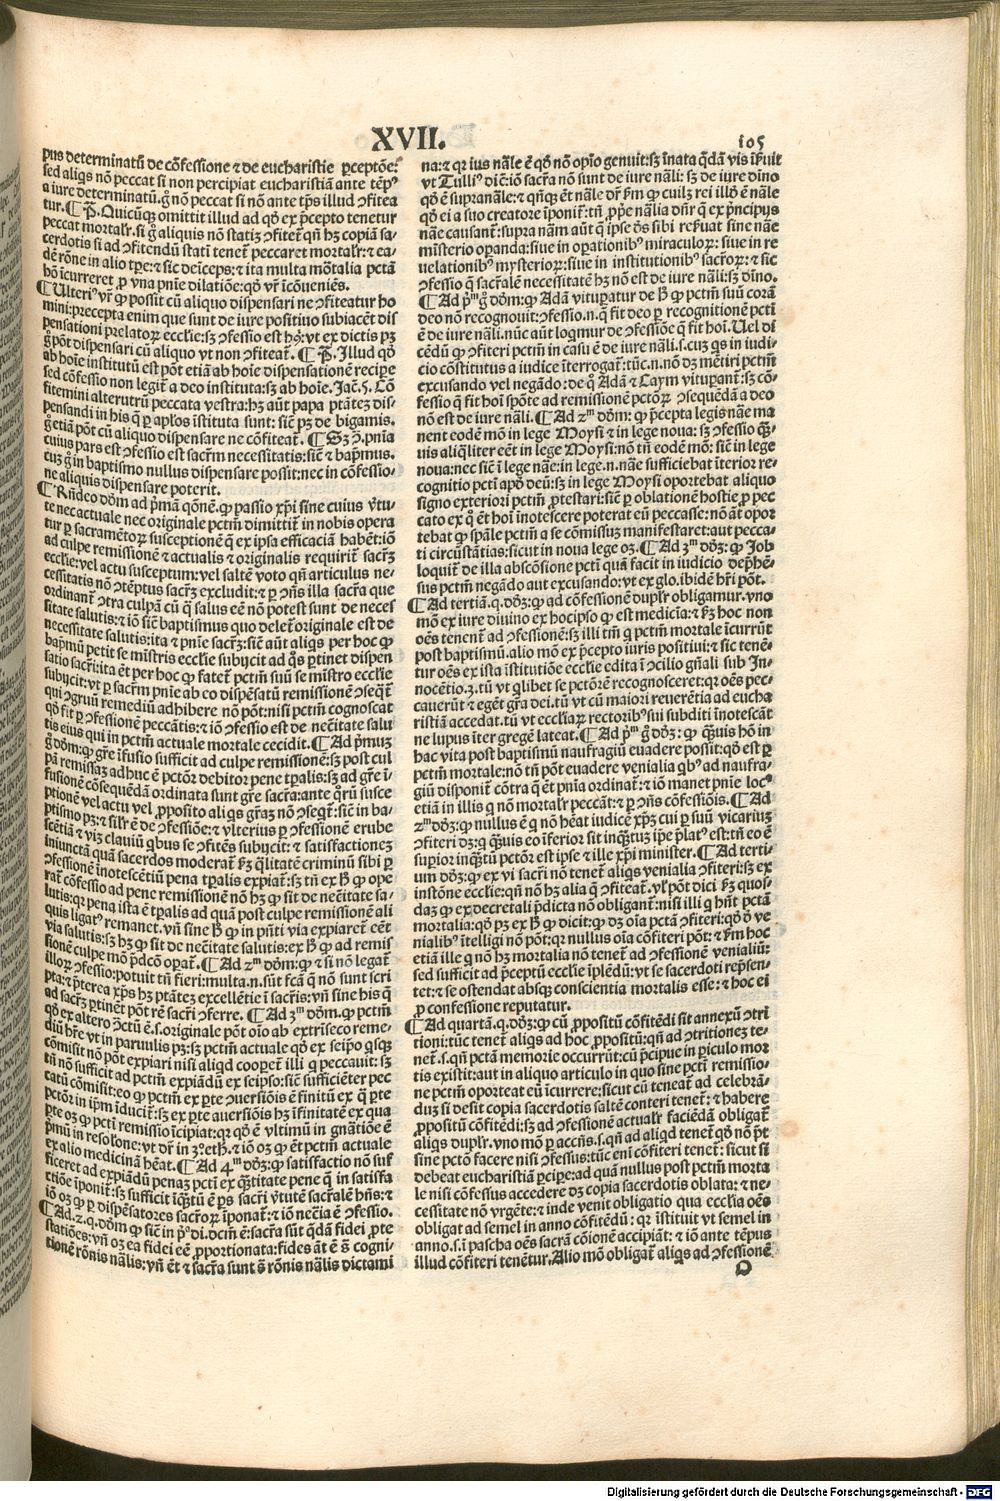 XVII.
105
pus determinatū de cōfessione ⁊ de eucharistie ꝑceptōe:
sed aliqs nō peccat si non percipiat eucharistiā ante tēpꝰ
a iure determinatū.gͦ nō peccat si nō ante tp̄s illud ꝯfitea
tur.¶ P̄. Quicūqꝫ omittit illud ad qď ex p̄cepto tenetur
peccat mortalr̄. si gͦ aliquis nō statiꝫ ꝯfitet̄ qn̄ hꝫ copiā sa/
cerdotis si ad ꝯfitendū stati tenet̄ peccaret mortalr̄: ⁊ ea/
dē rōne in alio tꝑe: ⁊ sic deīceps: ⁊ ita multa mōtalia pctā
hō icurreret ꝓ vna pnīe dilatiōe: qď vr̄ icōueniēs.
¶ Ulteriꝰ vr̄ ꝙ possit cū aliquo dispensari ne ꝯfiteatur ho
mini: precepta enim que sunt de iure positiuo subiacēt dis
pensationi prelatoꝝ ecclie: sꝫ ꝯfessio est hꝰ: vt ex dictis pꝫ
gͦ pōt dispensari cū aliquo vt non ꝯfiteat̄. ¶ P̄. Illud qď
ab hoīe institutū est pōt etiā ab hoīe dispensationē recipe
sed cōfessio non legit̄ a deo instituta: sꝫ ab hoīe. Jac̄.5. Cō
fitemini alterutrū peccata vestra: hꝫ aūt papa ptātez dis/
pensandi in his q̄ ꝑ aplos istituta sunt: sic̄ pꝫ de bigamis.
gͦ etiā pōt cū aliquo dispensare ne cōfiteat̄. ¶ Sꝫ ꝯ. pnīa
cuius pars est ꝯfessio est sacrm̄ necessitatis: sic̄ ⁊ bapmus.
cuꝫ gͦ in baptismo nullus dispensare possit: nec in cōfessio/
ne aliquis dispensare poterit.
¶ Rn̄deo dōm ad p̄mā qōnē. ꝙ passio xp̄i sine cuius v̄tu/
te nec actuale nec originale pctm̄ dimittit̄ in nobis opera
tur ꝑ sacramētoꝝ susceptionē q̄ ex ipsa efficaciā habēt: iō
ad culpe remissionē ⁊ actualis ⁊ originalis requirit̄ sacrꝫ
ecclie: vel actu susceptum: vel saltē voto qn̄ articulus ne/
cessitatis nō ꝯtēptus sacrꝫ excludit: ⁊ ꝑ ꝯn̄s illa sacra que
ordinant̄ ꝯtra culpā cū q̄ salus eē nō potest sunt de neces
sitate salutis: ⁊ iō sic̄ baptismus quo delet̄ originale est de
necessitate salutis: ita ⁊ pnīe sacrꝫ: sic̄ aūt aliqs per hoc ꝙ
bapmū petit se mīstris ecclie subijcit ad q̄s ꝑtinet dispen
satio sacri: ita ēt per hoc ꝙ fatet̄ pctm̄ suū se mīstro ecclie
subijcit: vt ꝑ sacrm̄ pnīe ab eo dispēsatū remissionē ꝯseqt̄
qui ꝯgruū remediū adhibere nō pōt: nisi pctm̄ cognoscat
qď fit ꝑ ꝯfessionē peccātis: ⁊ iō ꝯfessio est de necītate salu
tis eius qui in pctm̄ actuale mortale cecidit. ¶ Ad p̄muꝫ
gͦ dōm: ꝙ gr̄e ifusio sufficit ad culpe remissionē: sꝫ post cul
pā remissaꝫ adhuc ē pctōr debitor pene tꝑalis: sꝫ ad gr̄e i/
fusionē cōsequēdā ordinata sunt gr̄e sacra: ante q̄rū susce
ptionē vel actu vel ꝓposito aliqs gr̄aꝫ nō ꝯseqt̄: sic̄ in ba/
ptismo pꝫ: ⁊ silr̄ ē de ꝯfessiōe: ⁊ vlterius ꝑ ꝯfessionē erube
scētiā ⁊ viꝫ clauiū qbus se ꝯfitēs subijcit: ⁊ satisfactionez
iniunctā quā sacerdos moderat̄ ꝼꝫ qlitatē criminū sibi ꝑ
ꝯfessionē inotescētiū pena tꝑalis expiat̄: sꝫ tn̄ ex ħ ꝙ ope
rat̄ cōfessio ad pene remissionē nō hꝫ ꝙ sit de necītate sa/
lutis: qꝛ pena ista ē tꝑalis ad quā post culpe remissionē ali
quis ligatꝰ remanet. vn̄ sine ħ ꝙ in pn̄ti via expiaret̄ eēt
via salutis: sꝫ hꝫ ꝙ sit de necītate salutis: ex ħ ꝙ ad remis
sionē culpe mō p̄dcō oꝑat̄. ¶ Ad 2ᵐ dōm: ꝙ ⁊ si nō legat̄
illoꝝ ꝯfessio: potuit tn̄ fieri: multa.n. sūt fcā q̄ nō sunt scri
pta: ⁊ p̄terea xp̄s hꝫ ptātez excellētie i sacris: vn̄ sine his q̄
ad sacrꝫ ꝑtinēt pōt rē sacri ꝯferre. ¶ Ad 3ᵐ dōm. ꝙ pctm̄
qď ex altero ꝯctū ē. s. originale pōt oīo ab extriseco reme/
diū hr̄e vt in paruulis pꝫ: sꝫ pctm̄ actuale qď ex seipo qsqꝫ
cōmisit nō pōt expiari nisi aliqd cooperet̄ illi q peccauit: sꝫ
tn̄ nō sufficit ad pctm̄ expiādū ex seipso: sic̄ sufficiēter pec
catū cōmisit: eo ꝙ pctm̄ ex ꝑte ꝯuersiōis ē finitū ex q̄ ꝑte
pctōr in ipm īducit̄: sꝫ ex ꝑte auersiōis hꝫ ifinitatē ex qua
ꝑte oꝫ ꝙ pcti remissio icipiat: qꝛ qď ē vltimū in gnātiōe ē
p̄mū in resolone: vt dr̄ in 3ᵒ. eth. ⁊ iō oꝫ ꝙ ēt pctm̄ actuale
ex alio medicinā hēat. ¶ Ad 4ᵐ dōꝫ: ꝙ satisfactio nō suf
ficeret ad expiādū penaꝫ pcti ex q̄titate pene q̄ in satisfa
ctiōe iponit̄: sꝫ sufficit iq̄tū ē ps sacri v̄tutē sacralē hn̄s: ⁊
iō oꝫ ꝙ ꝑ dispēsatores sacroꝝ iponat̄: ⁊ iō necīa ē ꝯfessio.
¶ Ad. 2. q. dōm ꝙ sic̄ in p̄ᵃ di. dcm̄ ē: sacra sūt q̄dā fidei ꝓte
statiōes: vn̄ oꝫ ea fidei eē ꝓportionata: fides āt ē s̄ cogni/
tionē rōnis nālis: vn̄ ēt ⁊ sacra sunt s̄ rōnis nālis dictami
na: ⁊ qꝛ ius nāle ē qď nō opīo genuit: sꝫ inata q̄dā vis iꝼuit
vt Tulliꝰ dic̄: iō sacra nō sunt de iure nāli: sꝫ de iure dīno
qď ē supranāle: ⁊ qn̄qꝫ ēt nāle dr̄ ꝼm ꝙ cuilꝫ rei illď ē nāle
qď ei a suo creatore iponit̄: tn̄ ꝓp̄e nālia dn̄r q̄ ex p̄ncipys
nāe causant̄: supra nām aūt q̄ ipse ds̄ sibi reꝼuat sine nāe
misterio oꝑanda: siue in oꝑationibꝰ miraculoꝝ: siue in re
uelationibꝰ mysterioꝝ: siue in institutionibꝰ sacroꝝ: ⁊ sic
ꝯfessio q̄ sacralē necessitatē hꝫ nō est de iure nāli: sꝫ dīno.
¶ Ad p̄ᵐ gͦ dōm: ꝙ Adā vituꝑatur de ħ ꝙ pctm̄ suū corā
deo nō recognouit: ꝯfessio.n. q̄ fit deo ꝑ recognitionē pcti
ē de iure nāli. nūc aūt loqmur de ꝯfessiōe q̄ fit hoī. Uel di
cēdū ꝙ ꝯfiteri pctm̄ in casu ē de iure nāli. s. cuꝫ qs in iudi/
cio cōstitutus a iudice iterrogat̄: tūc.n. nō dꝫ mētiri pctm̄
excusando vel negādo: de q̄ Adā ⁊ Caym vituꝑant̄: sꝫ cō/
fessio q̄ fit hoī spōte ad remissionē pctōꝝ ꝯsequēdā a deo
nō est de iure nāli. ¶ Ad 2ᵐ dōm: ꝙ p̄cepta legis nāe ma
nent eodē mō in lege Moysi ⁊ in lege noua: sꝫ ꝯfessio q̄/
uis aliqliter eēt in lege Moysi: nō tn̄ eodē mō: sic̄ in lege
noua: nec sic̄ i lege nāe: in lege.n. nāe sufficiebat iterior re/
cognitio pcti apō deū: sꝫ in lege Moysi oportebat aliquo
signo exteriori pctm̄ ꝓtestari: sic̄ ꝑ oblationē hostie ꝓ pec
cato ex q̄ ēt hoī inotescere poterat eū peccasse: nō āt opor
tebat ꝙ spāle pctm̄ a se cōmissuꝫ manifestaret: aut pecca/
ti circūstātias: sicut in noua lege oꝫ. ¶ Ad 3ᵐ dōꝫ: ꝙ Job
loquit̄ de illa abscōsione pcti quā facit in iudicio deprehē/
sus pctm̄ negādo aut excusando: vt ex glo. ibidē hr̄i pōt.
¶ Ad tertiā. q. dōꝫ: ꝙ ad cōfessionē duplr̄ obligamur. vno
mō ex iure diuino ex hoc ipso ꝙ est medicīa: ⁊ ꝼꝫ hoc non
oēs tenent̄ ad ꝯfessionē: sꝫ illi tm̄ q pctm̄ mortale icurrūt
post baptismū. alio mō ex p̄cepto iuris positiui: ⁊ sic tenē/
tur oēs ex ista istitutiōe ecclie edita i ꝯcilio gn̄ali sub In/
nocētio. 3. tū vt qlibet se pctōrē recognosceret: qꝛ oēs pec/
cauerūt ⁊ egēt gr̄a dei. tū vt cū maiori reuerētia ad eucha
ristiā accedat. tū vt ecclieaꝝ rectoribꝰ sui subditi inotescāt
ne lupus iter gregē lateat. ¶ Ad p̄ᵐ gͦ dōꝫ: ꝙ q̄uis hō in
hac vita post baptismū naufragiū euadere possit: qď est ꝑ
pctm̄ mortale: nō tn̄ pōt euadere venialia qbꝰ ad naufra/
giū disponit̄ cōtra q̄ ēt pnīa ordinat̄: ⁊ iō manet pnīe locꝰ
etiā in illis q nō mortalr̄ peccāt: ⁊ ꝑ ꝯn̄s cōfessiōis. ¶ Ad
2ᵐ dōꝫ: ꝙ nullus ē q nō hēat iudicē xp̄ꝫ cui ꝑ suū vicariuꝫ
ꝯfiteri dꝫ: q q̄uis eo iferior sit inq̄tuꝫ ipe p̄latꝰ est: tn̄ eo ē
suꝑior inq̄tū pctōr est ipse ⁊ ille xp̄i minister. ¶ Ad terti/
um dōꝫ: ꝙ ex vi sacri nō tenet̄ aliqs venialia ꝯfiteri: sꝫ ex
instōne ecclie: qn̄ nō hꝫ alia q̄ ꝯfiteat̄. vl' pōt dici ꝼꝫ quos/
daꝫ ꝙ ex decretali p̄dicta nō obligant̄: nisi illi q hn̄t pctā
mortalia: qď pꝫ ex ħ ꝙ dicit̄: ꝙ dꝫ oīa pctā ꝯfiteri: qď ď ve
nialibꝰ itelligi nō pōt: qꝛ nullus oīa cōfiteri pōt: ⁊ ꝼm hoc
etiā ille q nō hꝫ mortalia nō tenet̄ ad ꝯfessionē venialiū:
sed sufficit ad p̄ceptū ecclie iplēdū: vt se sacerdoti repsen/
tet: ⁊ se ostendat absqꝫ conscientia mortalis esse: ⁊ hoc ei
ꝓ confessione reputatur.
¶ Ad quartā. q. dōꝫ: ꝙ cū ꝓpositū cōfitēdi sit annexū ꝯtri
tioni: tūc tenet̄ aliqs ad hoc ꝓpositū: qn̄ ad ꝯtritionez te/
net̄. s. qn̄ pctā memorie occurrūt: cū p̄cipue in ꝑiculo mor
tis existit: aut in aliquo articulo in quo sine pcti remissio/
ne pctm̄ oporteat eū icurrere: sicut cū teneat̄ ad celebrā/
duꝫ si desit copia sacerdotis saltē conteri tenet̄: ⁊ habere
ꝓpositū cōfitēdi: sꝫ ad ꝯfessionē actualr̄ faciēdā obligat̄
aliqs duplr̄. vno mō ꝑ accn̄s. s. qn̄ ad aliqd tenet̄ qď nō pt̄
sine pctō facere nisi ꝯfessus: tūc eni cōfiteri tenet̄: sicut si
debeat eucharistiā ꝑcipe: ad quā nullus post pctm̄ morta
le nisi cōfessus accedere dꝫ copia sacerdotis oblata: ⁊ ne/
cessitate nō vrgēte: ⁊ inde venit obligatio qua ecclīa oēs
obligat ad semel in anno cōfitēdū: qꝛ istituit vt semel in
anno. s. i pascha oēs sacrā cōionē accipiāt: ⁊ iō ante tēpus
illud cōfiteri tenētur. Alio mō obligat̄ aliqs ad ꝯfessionē
O
Digitalisierung gefördert durch die Deutsche Forschungsgemeinschaft - DFG